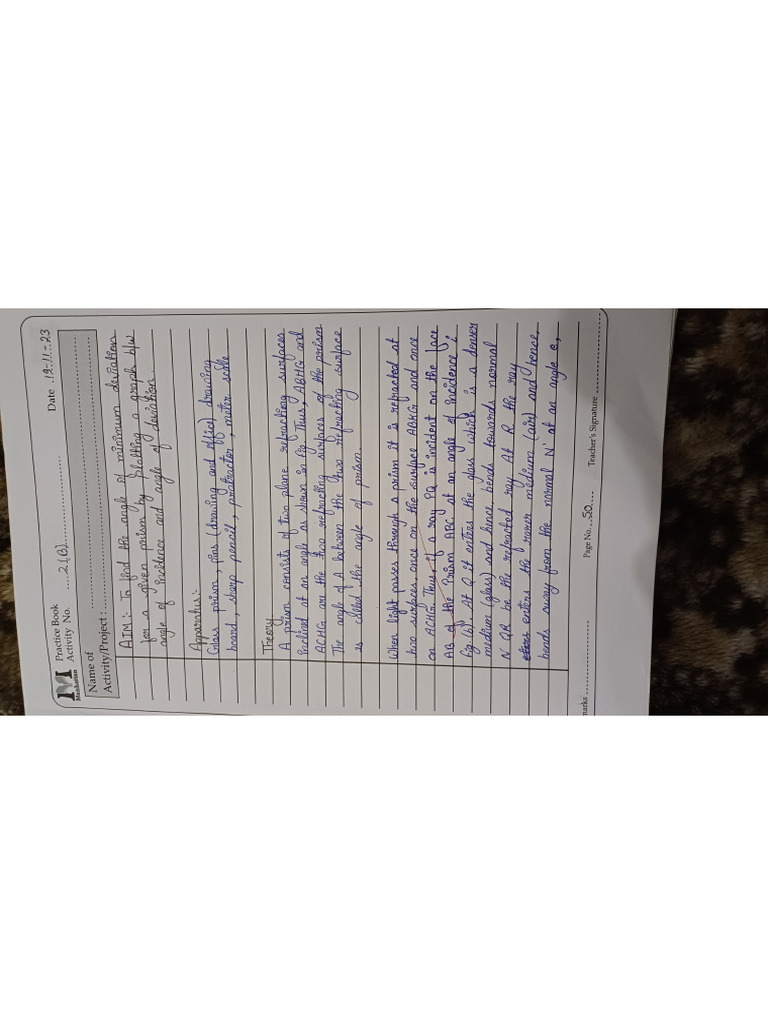 M
Manhattan
Practice Book
Activity No. ....2(B)....
Date 19-11-23
Name of
Activity/Project :
AIM:- To find the angle of minimum deviation
for a given prism by plotting a graph b/w
angle of incidence and angle of deviation
Apparatus:-
Glass prism, pins (drawing and office) drawing
board, sharp pencil, protracter, meter scale
Theory
A prism consists of two plane refracting surfaces
inclined at an angle as shown in fig Thus, ABHG and
ACHG are the two refracting surfaces of the prism
The angle of A between the two refracting surface
is called the angle of prism.
When light passes through a prism it is refracted at
two surfaces, once on the surface ABHG and once
on ACHG. Thus if a ray PQ is incident on the face
AB of the Prism ABC at an angle of incidence i
fig (b) At Q it enters the glass which is a denser
medium (glass) and hence bends towards normal
N QR be the refracted ray At R the ray
enters the rarer medium (air) and hence,
bends away from the normal N' at an angle e,
marks
Page No. ..50....
Teacher's Signature